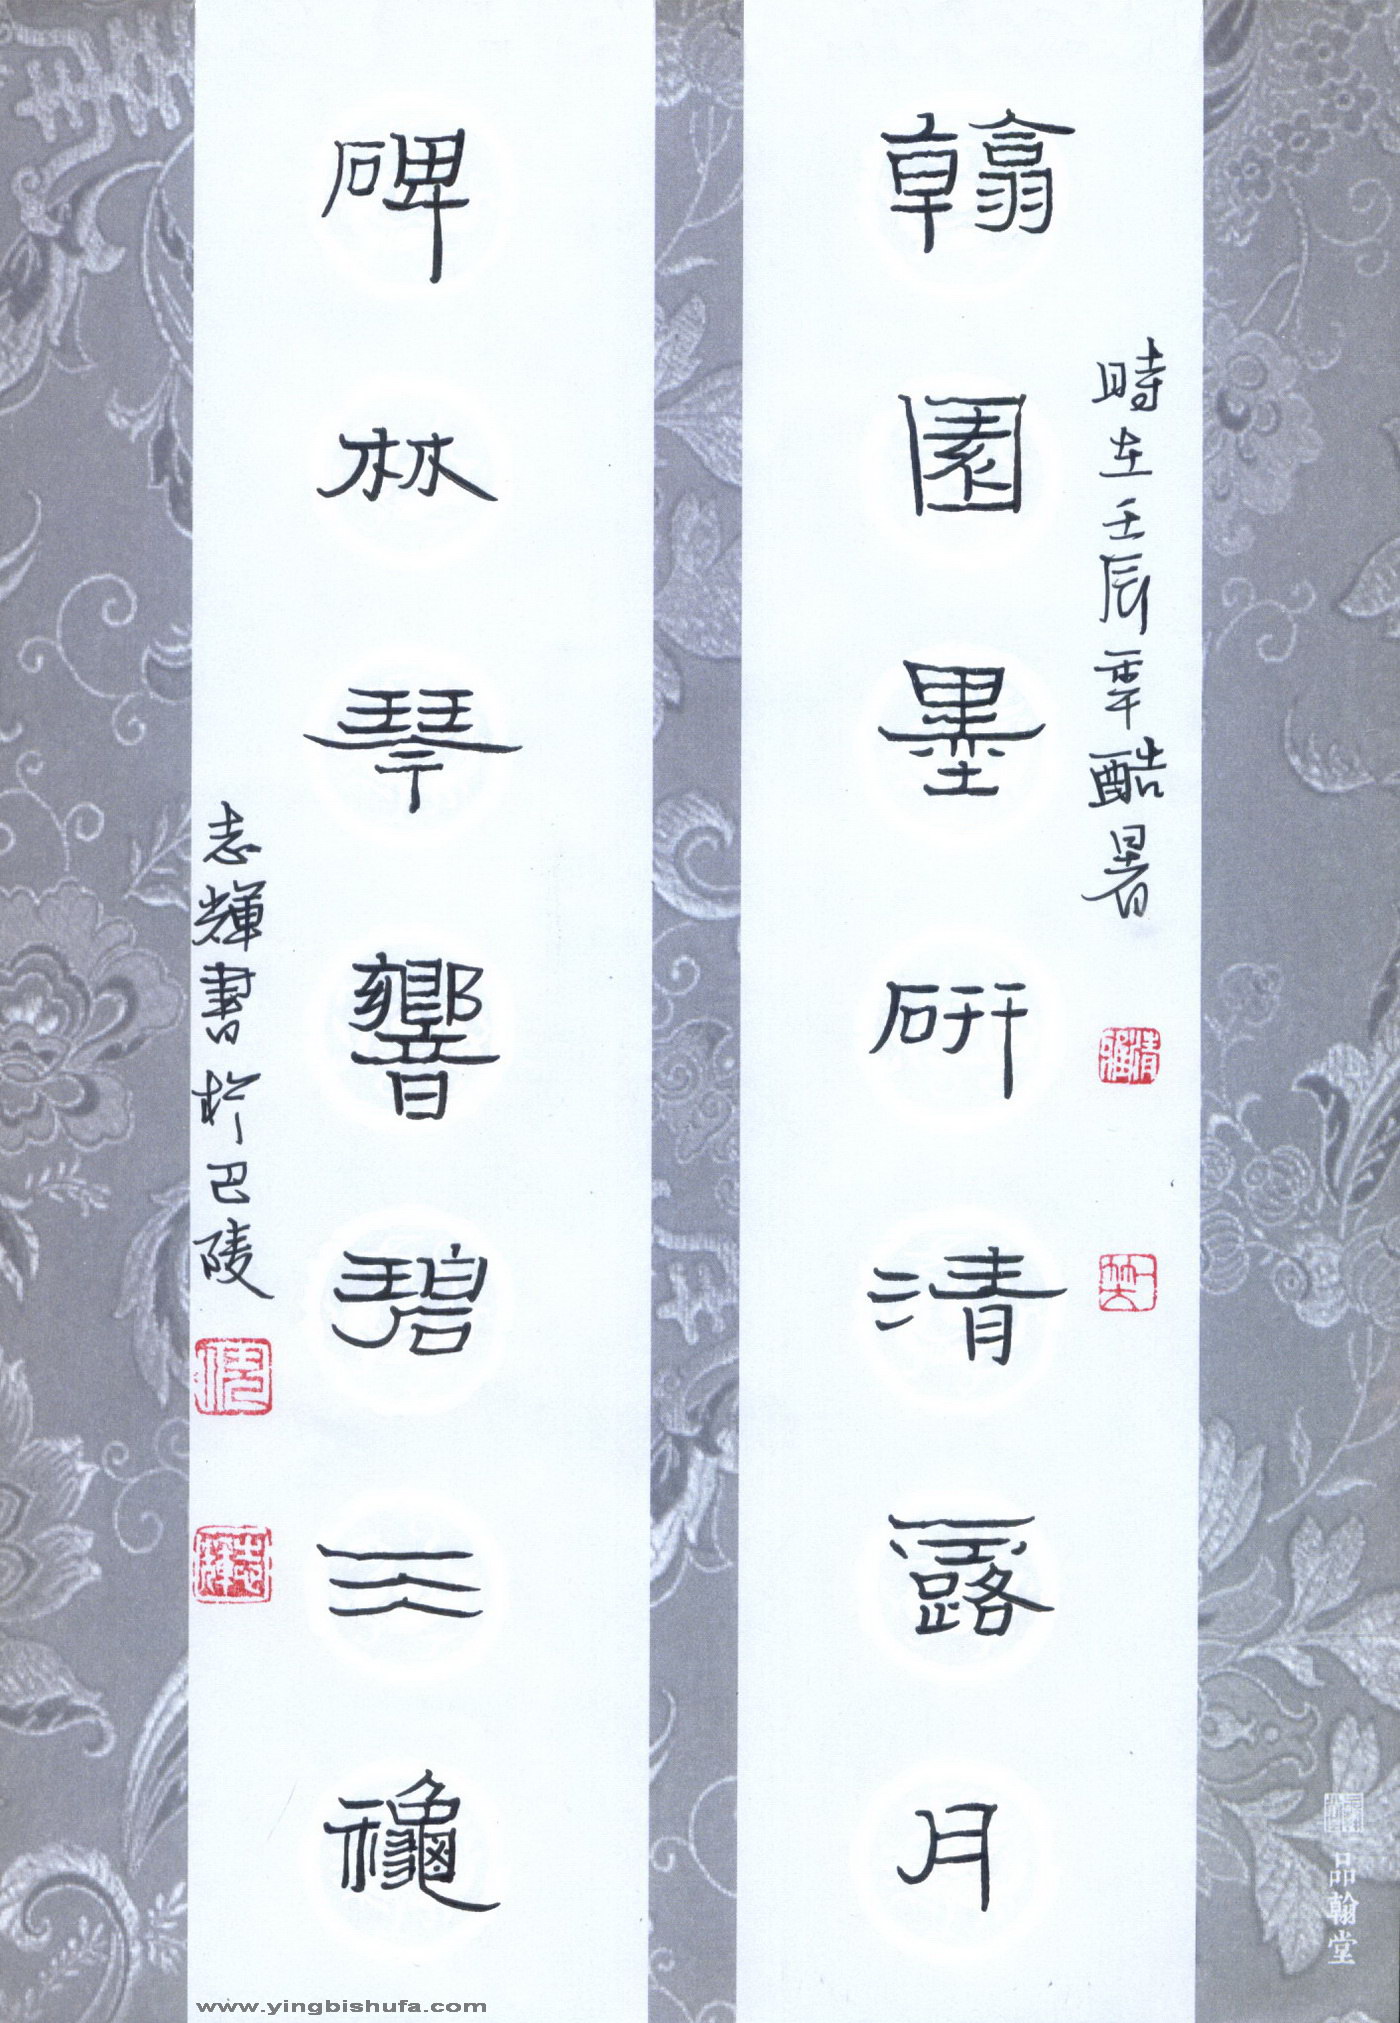 翰園墨研清露月
時在壬辰年酷暑
清雅
碑林琴響碧天龝
志輝書於巴陵
志輝
品翰堂
www.yingbishufa.com